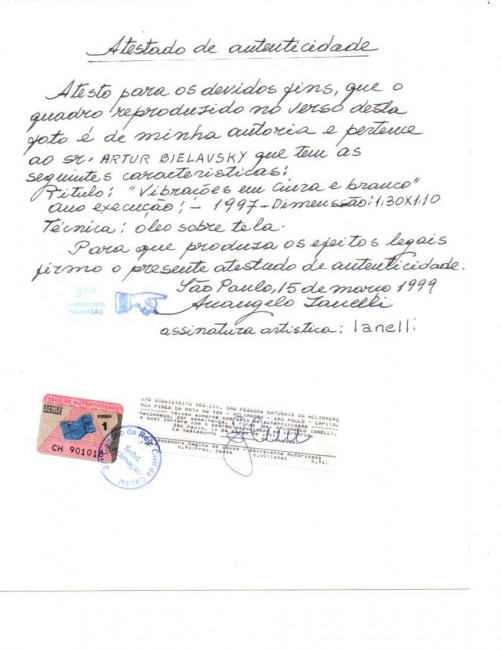 Atestado de autenticidade
Atesto para os devidos fins, que o
quadro reproduzido no verso desta
foto é de minha autoria e pertence
ao sr. ARTUR BIELAVSKY que tem as
seguintes características:
Título: "Vibrações em cinza e branco"
ano execução: - 1997 - Dimensão: 1.30X1.10
Técnica: oleo sobre tela.
Para que produza os efeitos legais
firmo o presente atestado de autenticidade.
São Paulo, 15 de março 1999
Arcangelo Ianelli
assinatura artística: Ianelli
SELO DE AUTENTICIDADE
FIRMA
1
CH 901012
Reg. Civil da Capital
Subd.
Aclimação
37º SUBDISTRITO REG.CIV. DAS PESSOAS NATURAIS DA ACLIMAÇÃO
RUA PIRES DA MOTA
ACLIMAÇÃO - SÃO PAULO - CAPITAL
IANELLI,
Em testemunho
Escrevente Autorizada